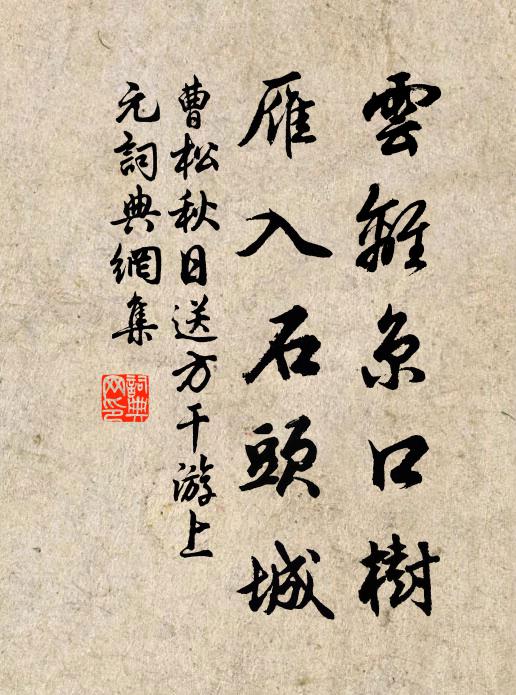 雲離京口樹
雁入石頭城
曹松秋日送方干游上
元詞典網集
詞典
网印